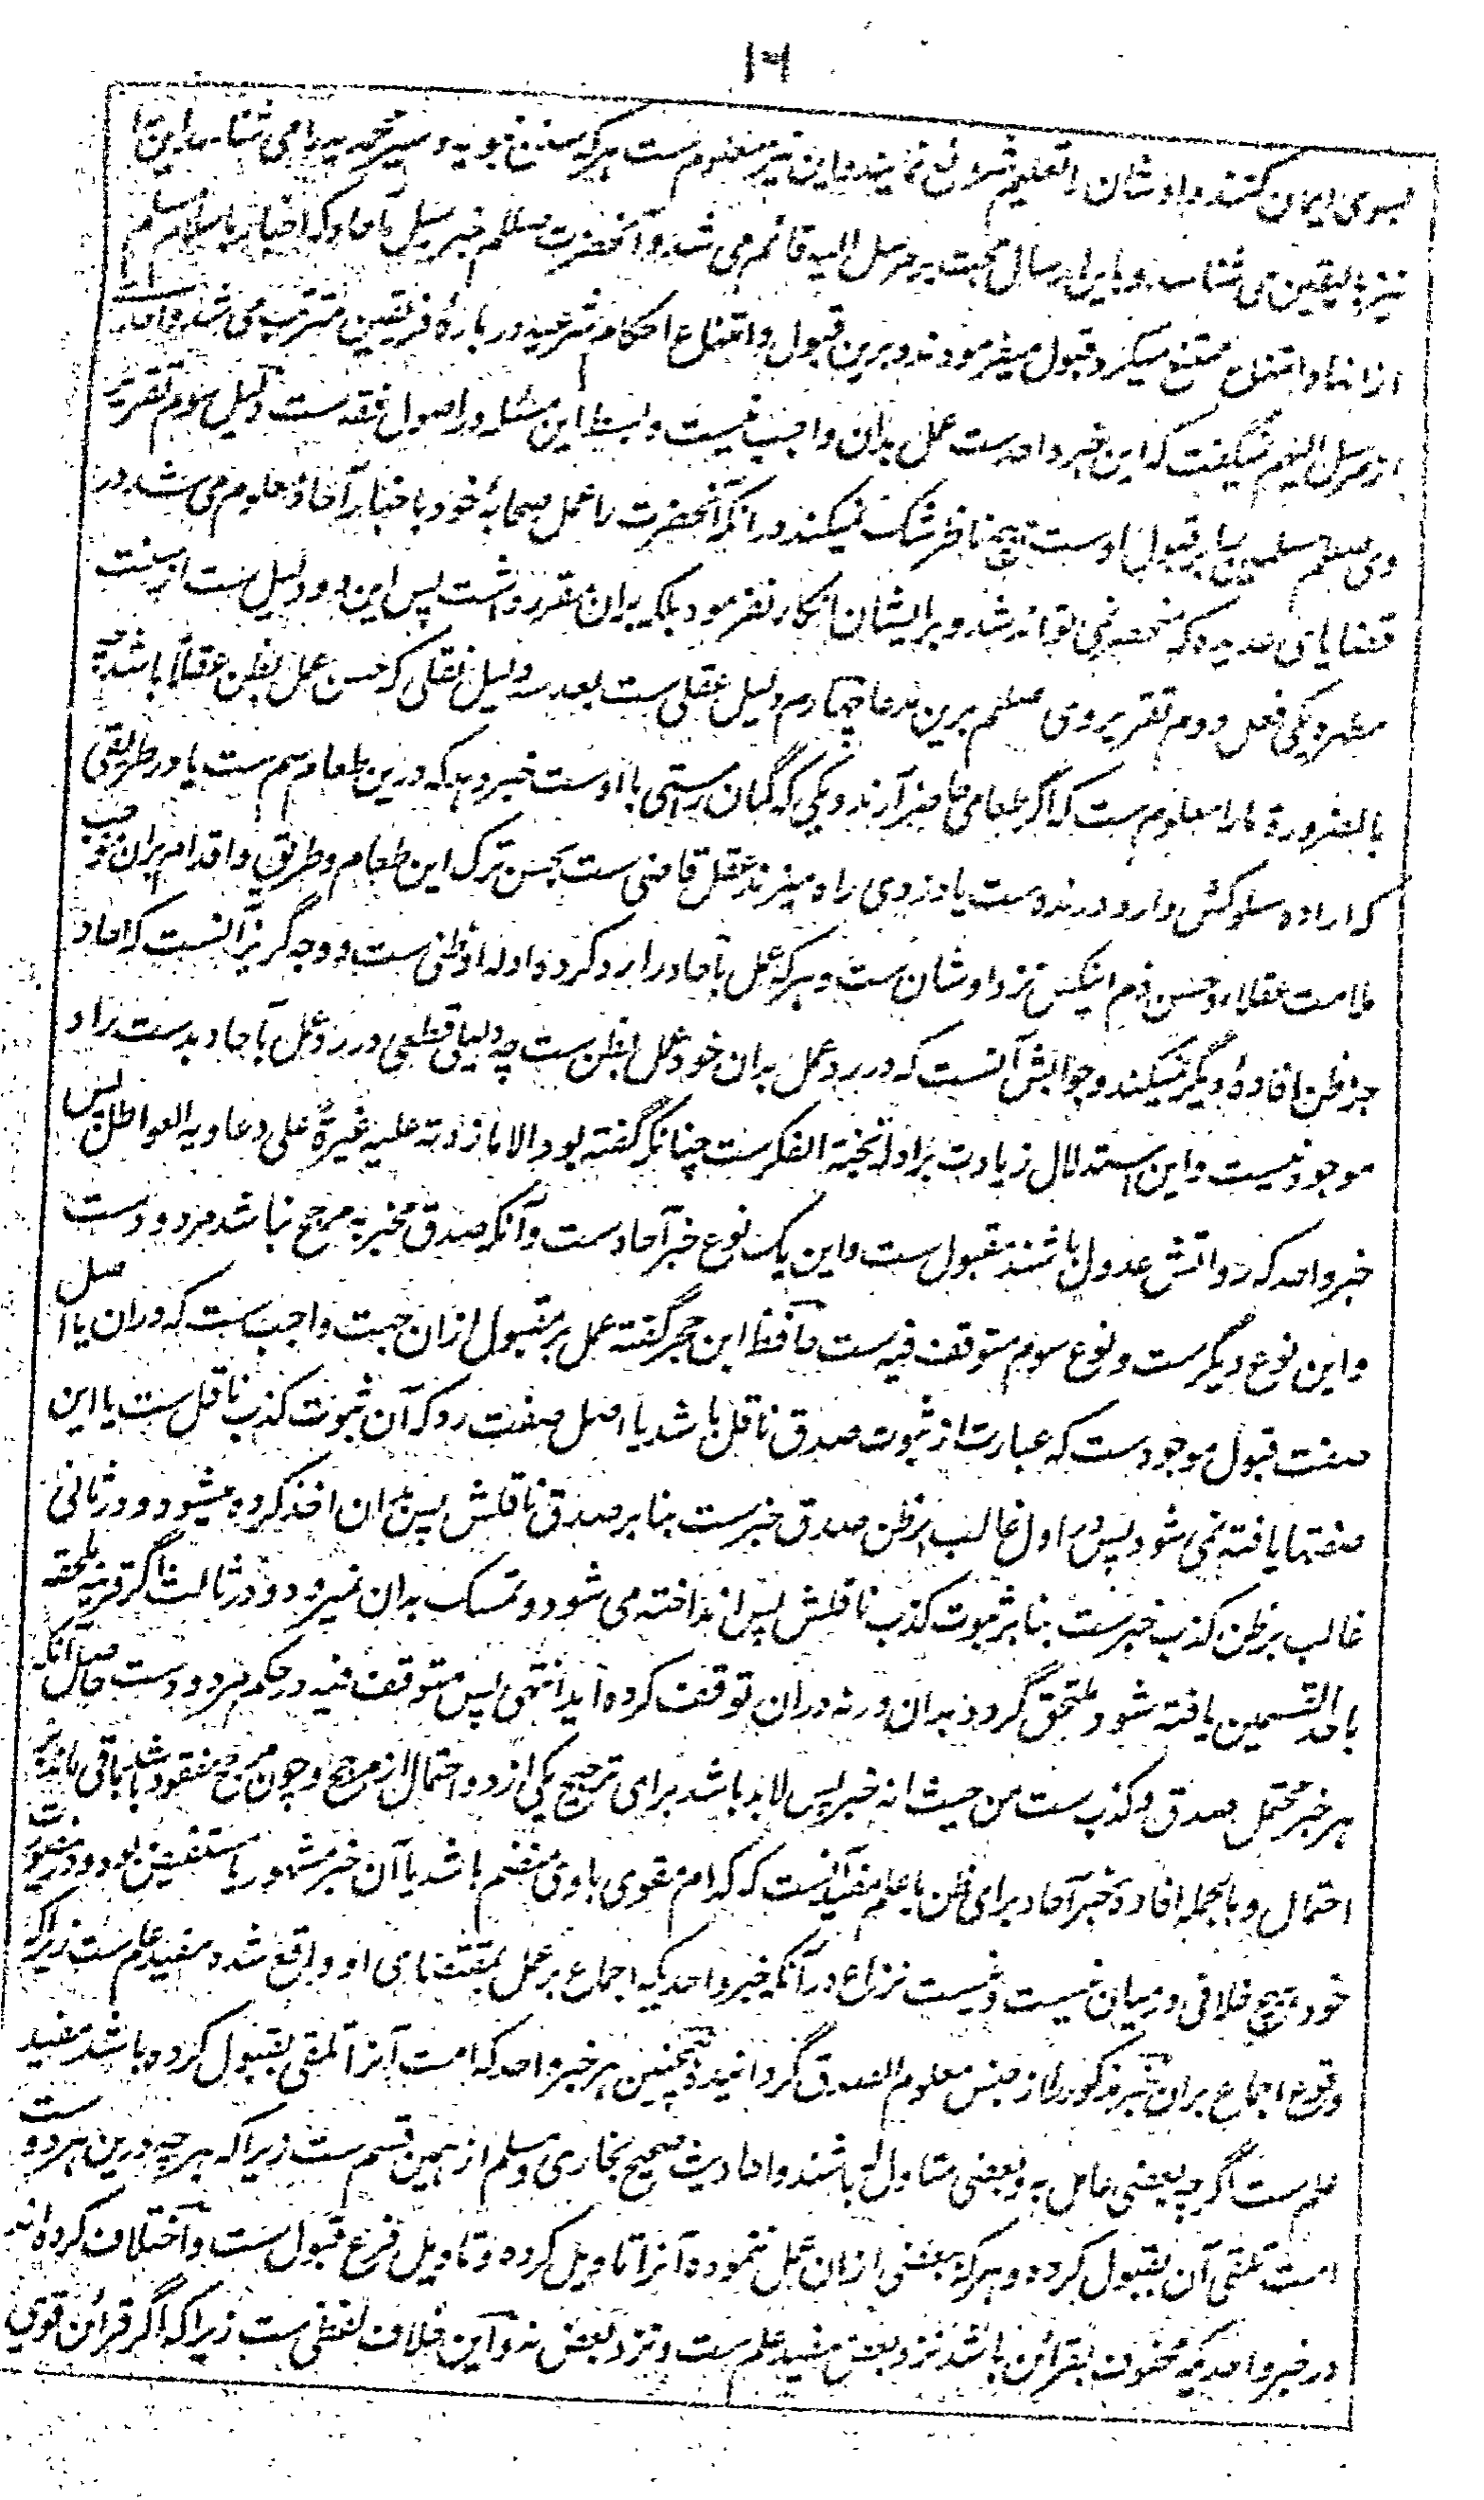 ١٦
بسوی ایمان کنند و اوشان را تعلیم شرائع نمایند و این نیز معلوم ست هر که سنن نبویه و سیر محمدیه را می شناسد این را
نیز بالیقین می شناسد و باین ارسال حجت بر مرسل الیه قائم می شد و آنحضرت صلعم خبر رسل آحاد و که اخبار باسلام مسلم
ازانها و امتناع ممتنع میکرد قبول میفرمودند و برین قبول و امتناع احکام شرعیه در باره فریقین مترتب می شد و احدی
از مرسل الیهم نمیگفت که این خبر واحد ست عمل بدان واجب نیست و بسط این مسئله در اصول فقه ست دلیل سوم تقریر
وی صلعم مسلمین را بر قبول اوست هیچ ناظر شک نمیکند در انکه آنحضرت را عمل صحابهٔ خود باخبار آحاد معلوم می شد در
قضایای عدیده که منحصر نمی تواند شد و بر ایشان انکار نفرمود بلکه بران مقرر داشت پس این دو دلیل ست از سنت
مطهره یکی فعل و دوم تقریر وی صلعم برین مدعا چهارم دلیل عقلی ست بعد سه دلیل نقلی که حسن عمل بظن عقلاً باشد چه
بالضرورة ما را معلوم ست که اگر طعامی حاضر آرند و یکی که گمان راستی با اوست خبر دهد که درین طعام سم ست یا در طریقی
که اراده سلوکش دارد درنده ست یا دزدی راه میزند عقل قاضی ست بحسن ترک این طعام و طریق و اقدام بران موجب
ملامت عقلاء و حسن ذم اینکس نزد اوشان ست و هر که عمل بآحاد را رد کرده ادله او ظنی ست و وجه گریز آنست که احاد
جز ظن افاده دیگر نمیکند و جوابش آنست که در رد عمل بدان خود عمل بظن ست چه دلیلی قطعی در رد عمل بآحاد بدست راد
موجود نیست و این استدلال زیادت بر ادله نخبة الفکر ست چنانکه گفته بود الا ما زدته علیه غیرةً علی دعاویه العواطل پس
خبر واحد که رواتش عدول باشند مقبول ست و این یک نوع خبر آحادست و آنکه صدق مخبر به مرجح نباشد مردودست
و این نوع دیگرست و نوع سوم متوقف فیه ست حافظ ابن حجر گفته عمل بر مقبول ازان جهت واجب ست که دران یا اصل
صفت قبول موجودست که عبارت از ثبوت صدق ناقل باشد یا اصل صفت رد که آن ثبوت کذب ناقل ست یا این
صفتها یافته نمی شود پس در اول غالب بر ظن صدق خبرست بنا بر صدق ناقلش پس بدان اخذ کرده میشود و در ثانی
غالب بر ظن کذب خبرست بنا بر ثبوت کذب ناقلش پس انداخته می شود و تمسک بدان نمیرود و در ثالث اگر قرینه ملحقه
باحد القسمین یافته شود ملتحق گردد بدان ورنه دران توقف کرده آید انتهی پس متوقف فیه در حکم مردودست حاصل آنکه
هر خبر محتمل صدق و کذب ست من حیث انه خبر پس لابد باشد برای ترجیح یکی از دو احتمال از مرجح و چون مرجح مفقود باشد باقی ماند بر
احتمال و بالجمله افاده خبر آحاد برای ظن یا علم مقید آنست که کدام مقوی باوی منضم باشد یا آن خبر مشهور یا مستفیض بود و در
خود هیچ خلافی درمیان نیست و نیست نزاع در آنکه خبر واحدیکه اجماع بر عمل بمقتضای او واقع شده مفید علم ست زیرا که
وقوع اجماع بران خبر مذکور را از جنس معلوم الصدق گردانیده و همچنین هر خبر واحد که امت آنرا تلقی بقبول کرده باشد مفید
علم ست اگرچه بعضی عامل به و بعضی متاول له باشند و احادیث صحیح بخاری و مسلم از همین قسم ست زیرا که هر چه درین هر دو ست
امت تلقی آن بقبول کرده و هر که ببعضی ازان عمل ننموده آنرا تاویل کرده و تاویل فرع قبول ست و اختلاف کرده اند
در خبر واحدیکه محفوف بقرائن باشد نزد بعض مفید علم ست و نزد بعض نه و این خلاف لفظی ست زیرا که اگر قرائن قوی